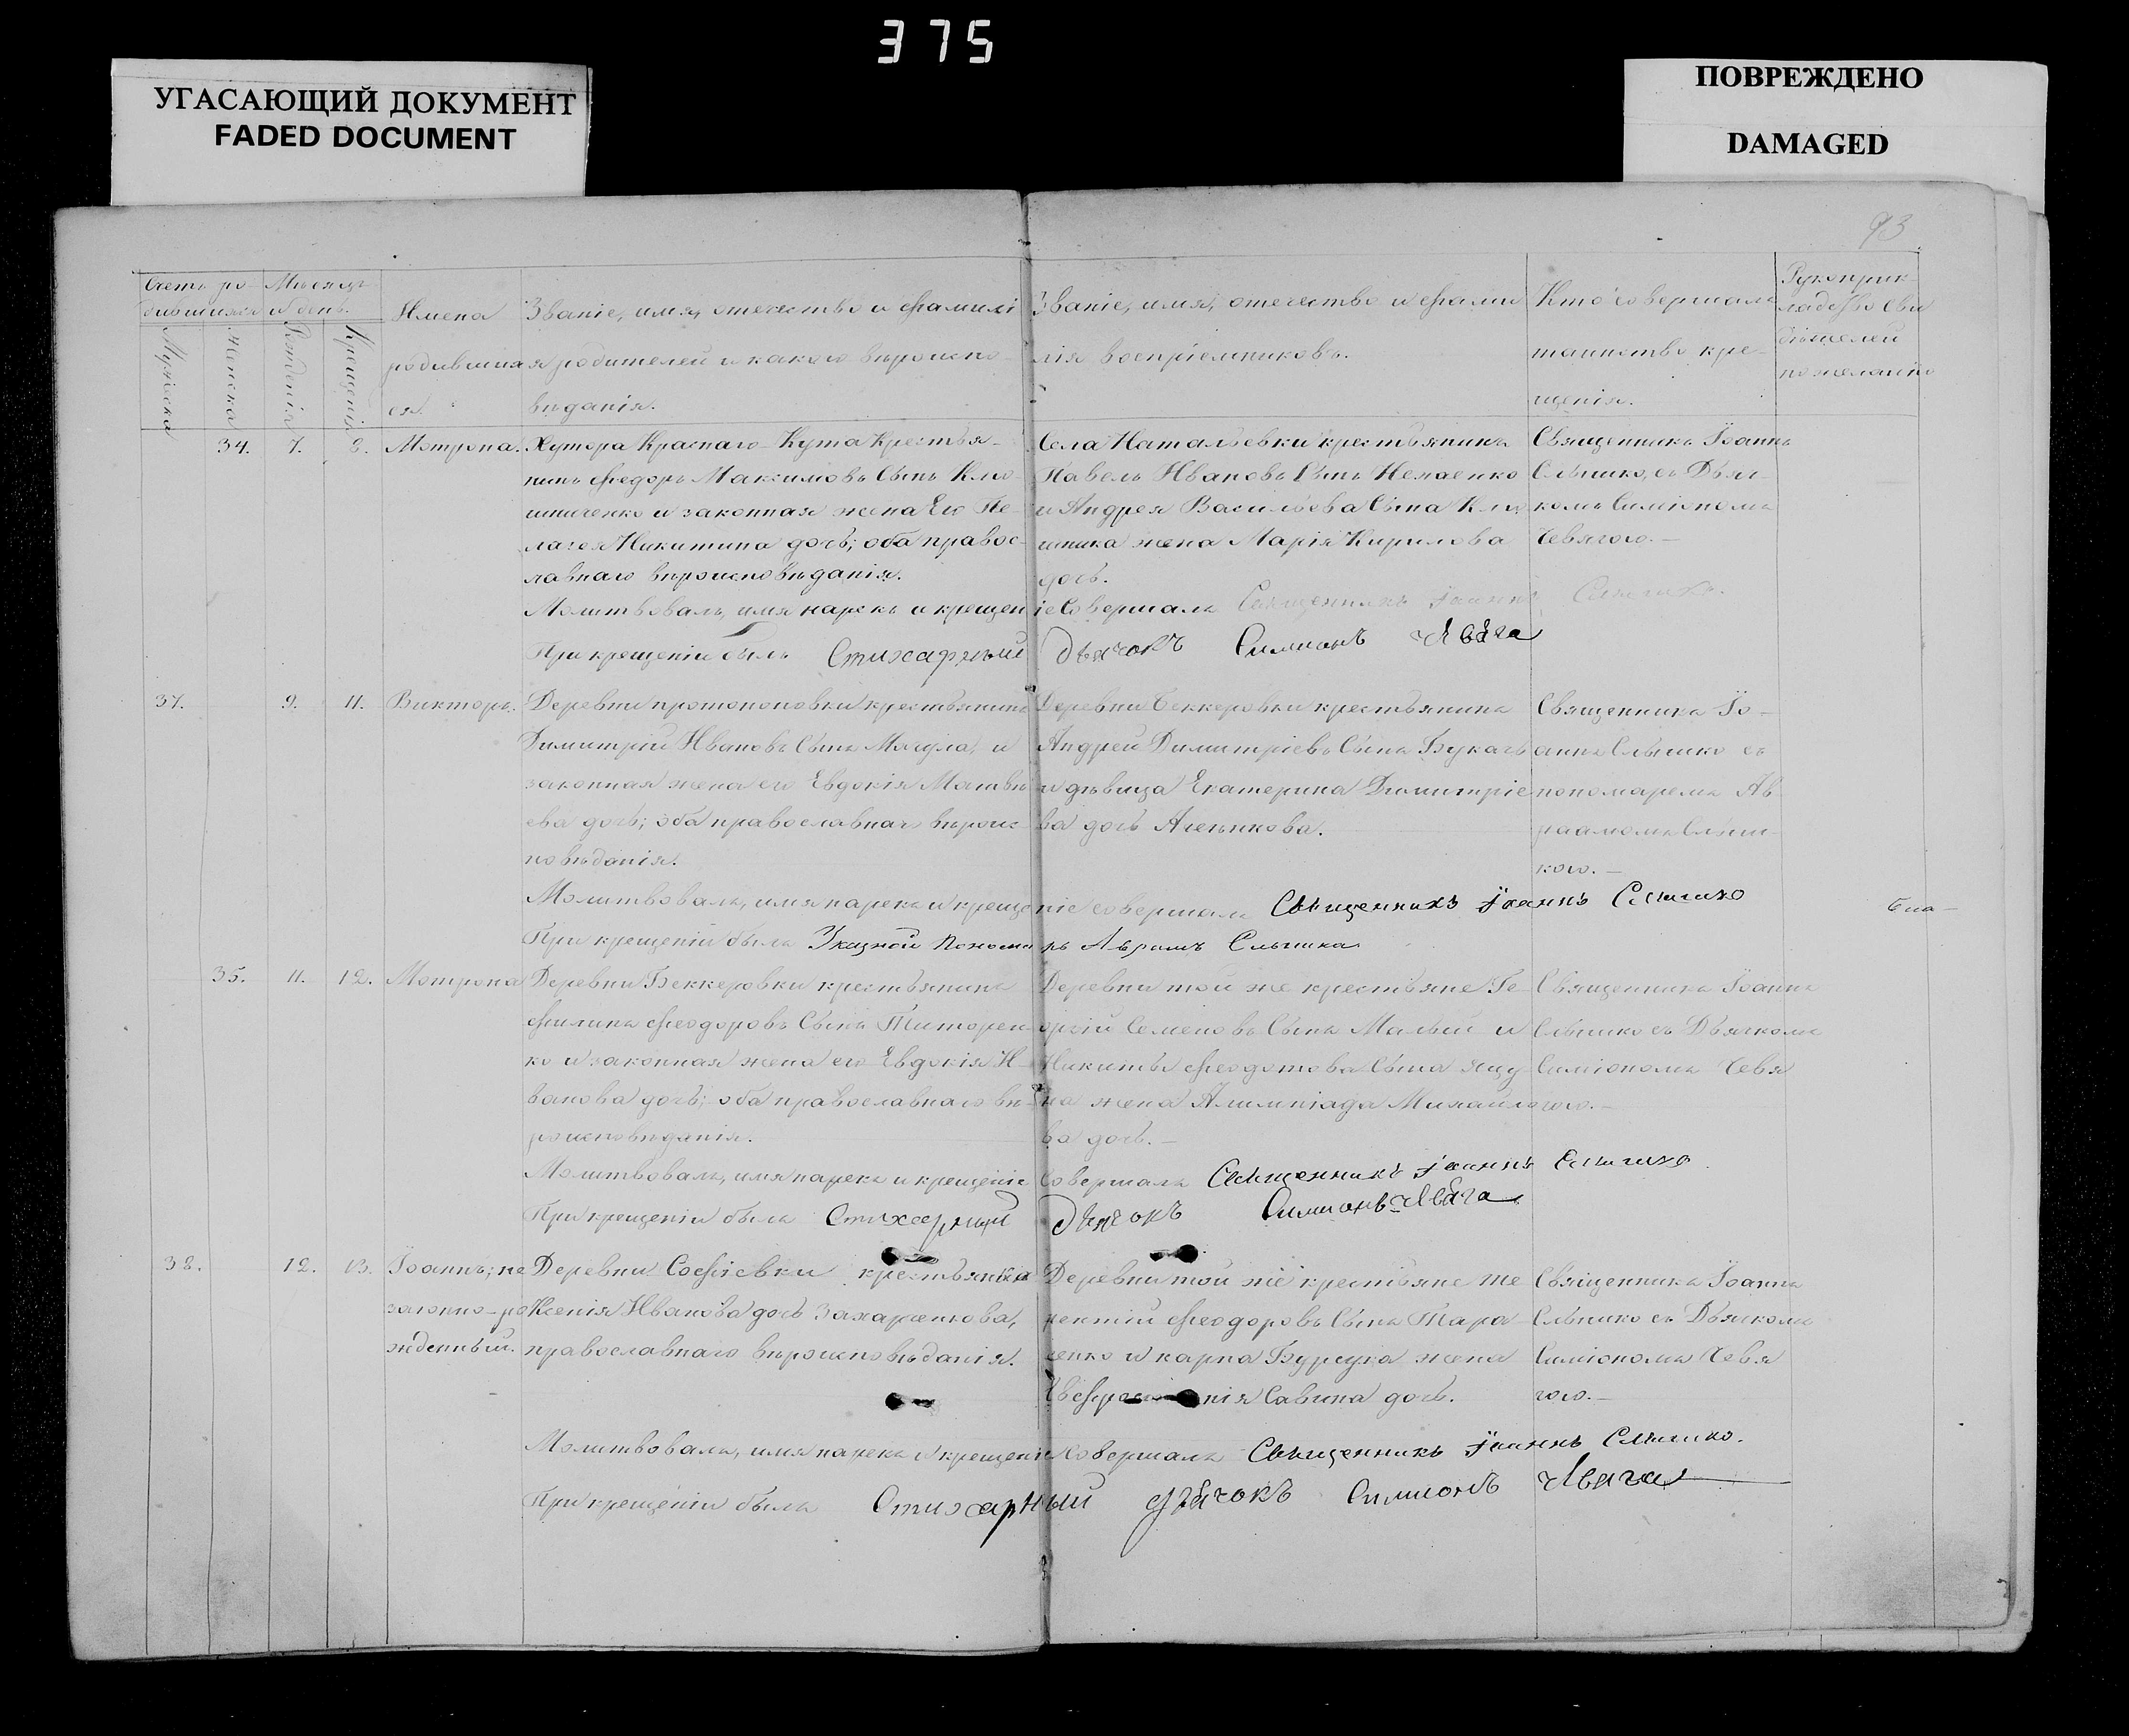 375
УГАСАЮЩИЙ ДОКУМЕНТ
FADED DOCUMENT
ПОВРЕЖДЕНО
DAMAGED
93
Счетъ ро-
дившихся
Мѣсяцъ
и день.
Мужеска
Женска
Рожденія
Крещенія
Имена
родивших
ся.
Званіе, имя, отечество и фамилі
я родителей и какого вѣроиспо-
вѣданія.
Званіе, имя, отечество и фами
лія воспріемниковъ.
Кто совершалъ
таинство кре-
щенія.
Рукоприк
ладство сви
дѣтелей
по желанію
34. 7. 8. Мотрона.
Хутора Краснаго-Кута Крестья-
нинъ Федоръ Максимовъ Сынъ Клю-
шниченко и законная жена Его Пе-
лагея Никитина дочь; оба правос-
лавнаго вѣроисповѣданія.
Села Натальевки крестьянинъ
Павелъ Ивановъ Сынъ
и Андрея Васильева Сына
жена Марія Кирилова
дочь.
Священникъ Іоаннъ
Слышко, съ Дьяч-
комъ Симіономъ
Чвягою.—
Молитвовалъ, имя нарекъ и крещеніе Совершалъ Священникъ Іоаннъ Слышко.
При крещеніи былъ Стихарный Дьячокъ Симионъ Чвяга
37. 9. 11. Викторъ.
Деревни протопоповки крестьянинъ
Димитрій Ивановъ Сынъ и
законная жена его Евдокія Матвѣ
ева дочь; оба православнаго вѣроис-
повѣданія.
Деревни Беккеровки крестьянинъ
Андрей Димитріевъ Сынъ
и дѣвица Екатерина Димитріе
ва дочь
Священникъ Іо-
аннъ Слышко съ
пономаремъ Ав
раамомъ Слыш-
кою.—
Молитвовалъ, имя нарекъ и крещеніе совершалъ Священникъ Іоаннъ Слышко
При крещеніи былъ Указной Пономарь Аврамъ Слышка
35. 11. 12. Мотрона
Деревни Беккеровки крестьянинъ
Филипъ Феодоровъ Сынъ Титорен-
ко и законная жена его Евдокія И-
ванова дочь; оба православнаго вѣ-
роисповѣданія.
Деревни той же крестьяне Ге-
оргій Семеновъ Сынъ Малый и
Никиты Феодотова Сына
жена Алимпіада Михайло
ва дочь.—
Священникъ Іоаннъ
Слышко съ Дьячкомъ
Симіономъ Чвя
гою.—
Молитвовалъ, имя нарекъ и крещеніе Совершалъ Священникъ Іоаннъ Слышко
При крещеніи былъ Стихарный Дьячокъ Симионъ Чвяга
38. 12. 13. Іоаннъ; не
законно-ро
жденный.
Деревни Софіевки крестьянка
Ксенія Иванова дочь Захаренкова,
православнаго вѣроисповѣданія.
Деревни той же крестьяне Те
рентій Феодоровъ Сынъ Тара
сенко и карпа Бурсука жена
Савина дочь.
Священникъ Іоаннъ
Слышко съ Дьячкомъ
Симіономъ Чвя
гою.—
Молитвовалъ, имя нарекъ и крещеніе Совершалъ Священникъ Іоаннъ Слышко.
При крещеніи былъ Стихарный Дьячокъ Симионъ Чвяга